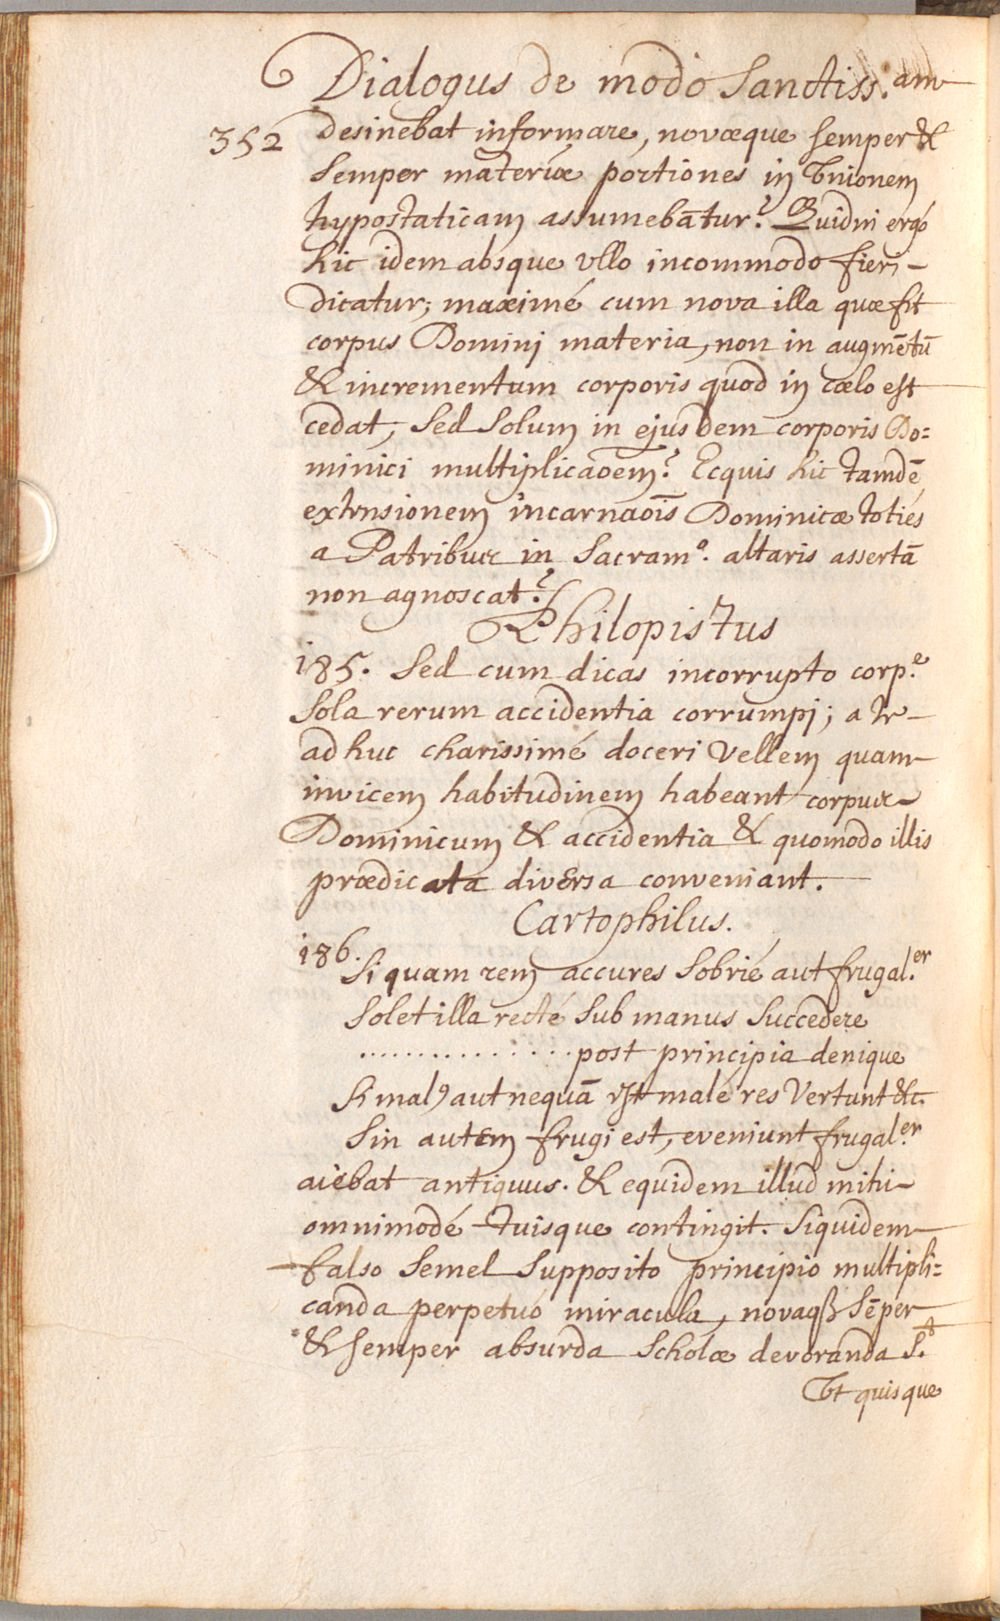 Dialogus de modo Sanctiss.am
352
desinebat informare, novæque semper &
semper materiæ portiones in Vnionem
hypostaticam assumebātur? Quidni ergò
hic idem absque vllo incommodo fieri
dicatur; maximé cum nova illa quæ fit
corpus Domini materia, non in augmētū
& incrementum corporis quod in cœlo est
cedat, sed solum in ejusdem corporis Do=
minici multiplicaōem? Ecquis hic tamdē
extensionem incarnaōis Dominicæ totiés
a Patribus in Sacram.o altaris assertā
non agnoscat?
Philopistus
185. Sed cum dicas incorrupto corp.e
sola rerum accidentia corrumpi; a te
ad huc charissimé doceri Vellem quam
invicem habitudinem habeant corpus
Dominicum & accidentia & quomodo illis
prædicata diversa conveniant.
Cartophilus.
186.
Si quam rem accures sobrié aut frugal.er
solet illa recté sub manus succedere
............... post principia denique
Si malꝰ aut nequā est malé res Vertunt &c.
Sin autem frugi est, eveniunt frugal.er
aiebat antiquus. & equidem illud mihi
omnimodé tuisque contingit. Siquidem
falso semel supposito principio multipli=
canda perpetuó miracula, novaqß sēper
& semper absurda Scholæ devoranda S.t
Vt quisque